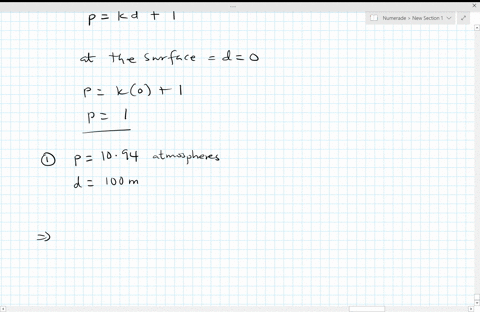 p = kd + 1
Numerade > New Section 1
at the surface = d = 0
p = k(0) + 1
p = 1
① p = 10.94 atmospheres
d = 100 m
⇒